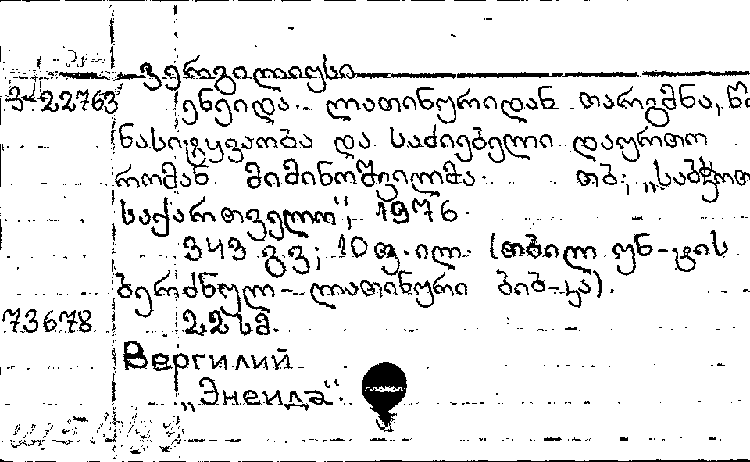 ვერგილიუსი
3-22763 ენეიდა. ლათინურიდან თარგმნა, წი
ნასიტყვაობა და საძიებელი დაურთო
რომან მიმინოშვილმა. თბ; „საბჭოთ
საქართველო", 1976.
343 გვ; 10 ფ. ილ. (თბილ უნ-ტის
ბერძნულ-ლათინური ბიბ-კა).
73678 22 სმ.
Вергилий
„Энеида".